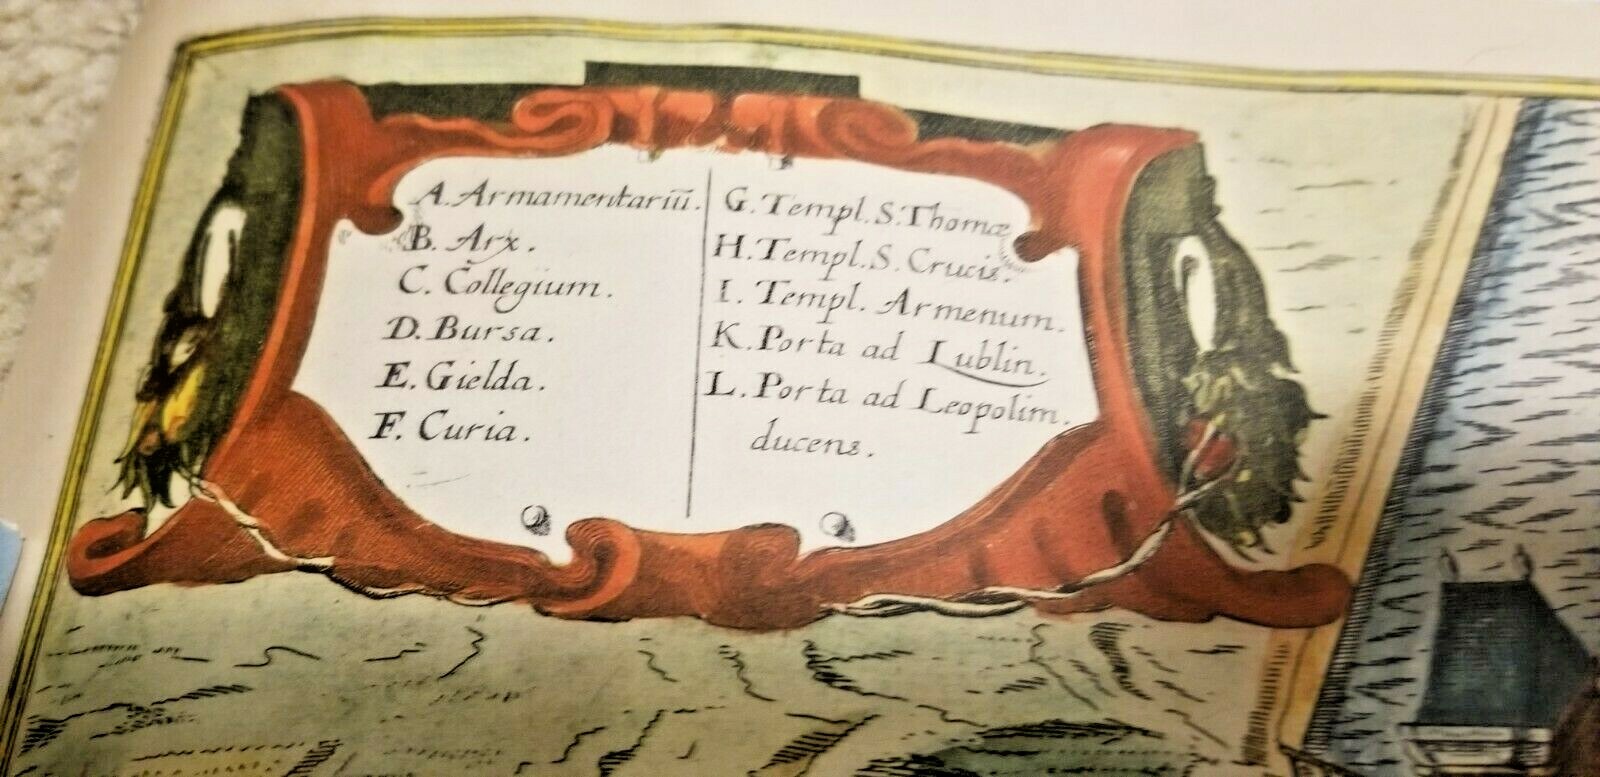 A. Armamentariũ.
B. Arx.
C. Collegium.
D. Bursa.
E. Gielda.
F. Curia.
G. Templ. S. Thomæ
H. Templ. S. Crucis.
I. Templ. Armenum.
K. Porta ad Lublin.
L. Porta ad Leopolim.
ducens.